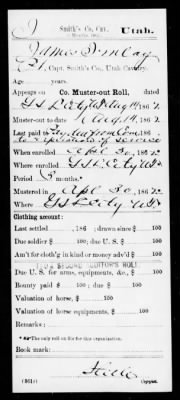 J Smith's Co. Cav. Utah.
James
Capt. Smith's Co., Utah Cavalry.
Age years.
Appears on Co. Muster-out Roll, dated
G S L City U T Aug 14, 1862.
Muster-out to date Aug 14, 1862.
Last paid to
to expiration of service
When enrolled Apl 30, 1862
Where enrolled G S L City U T
Period 3 months.
Mustered in Apl 30, 1862
Where G S L City U T
Clothing account:
Last settled , 186 ; drawn since $ 100
Due soldier $ 100; due U. S. $ 100
Am't for cloth'g in kind or money adv'd $ 100
Due U. S. for arms, equipments, &c., $ 100
Bounty paid $ 100; due $ 100
Valuation of horse, $ 100
Valuation of horse equipments, $ 100
Remarks:
*The only roll on file for this organization.
Book mark:
(361c) Copyist.